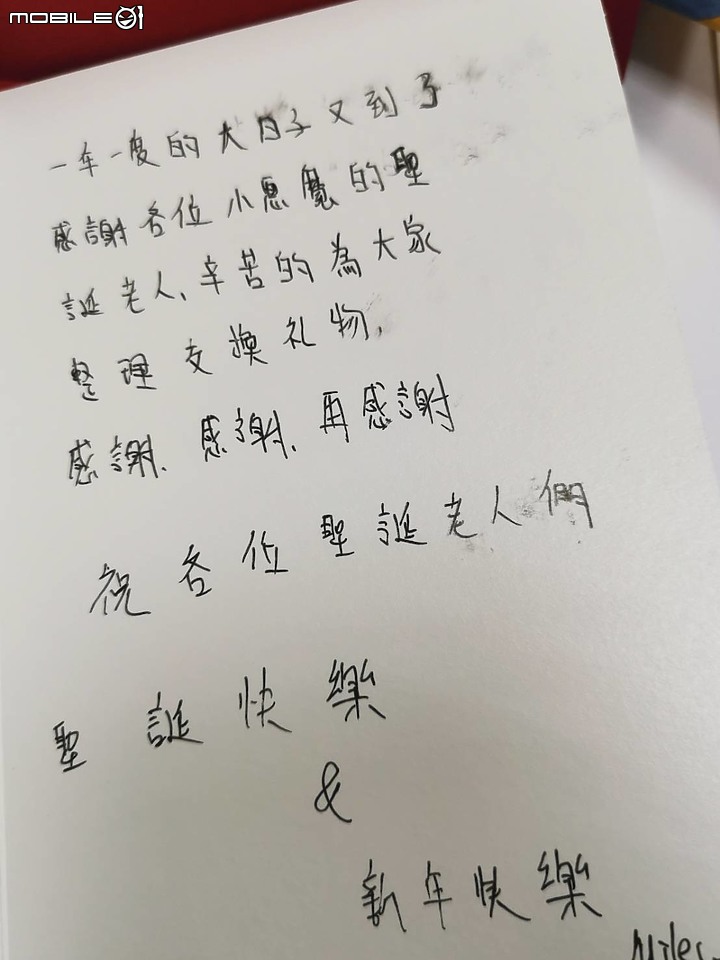 MOBILE01
一年一度的大日子又到了
感謝各位小惡魔的聖
誕老人、辛苦的為大家
整理交換礼物,
感謝、感謝、再感謝
祝各位聖誕老人們
聖誕快樂
&
新年快樂